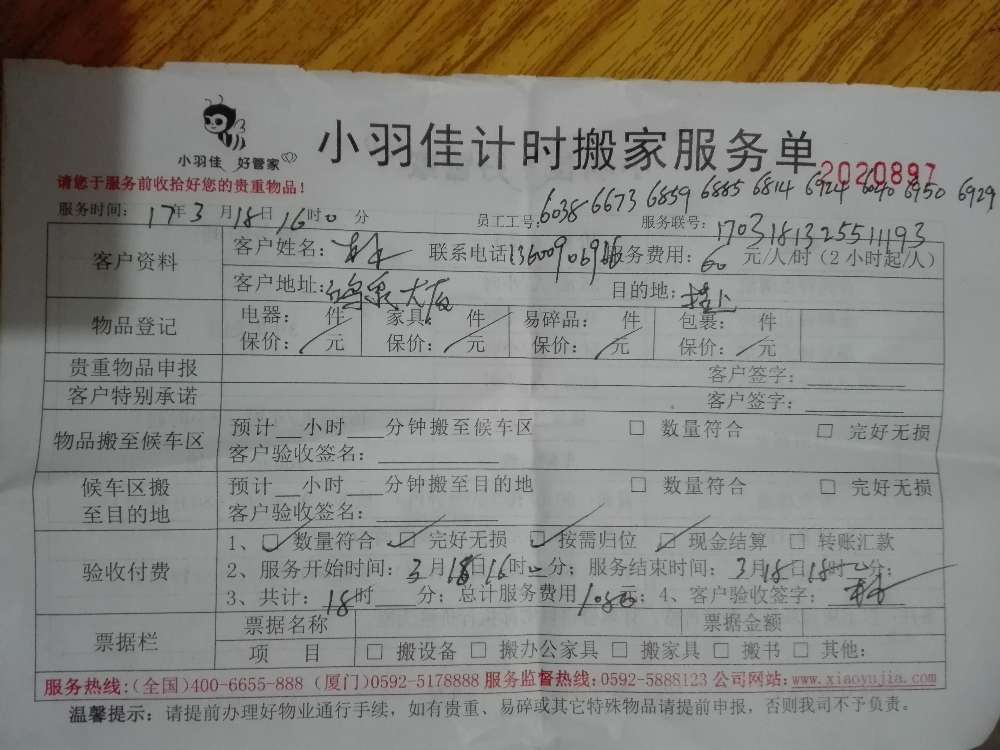 小羽佳 好管家
小羽佳计时搬家服务单
2020897
请您于服务前收拾好您的贵重物品！
服务时间：17年3月18日16时0分 员工工号：6038 6673 6859 6885 6814 6924 6040 6950 6929 服务联号：17031813255111193
客户资料 客户姓名：林 联系电话 服务费用：60元/人/时（2小时起/人）
客户地址： 大厦 目的地：楼上
物品登记 电器： 件 家具： 件 易碎品： 件 包裹： 件
保价：／元 保价：／元 保价：／元 保价：／元
贵重物品申报 客户签字：
客户特别承诺 客户签字：
物品搬至候车区 预计__小时___分钟搬至候车区 □ 数量符合 □ 完好无损
客户验收签名：
候车区搬至目的地 预计__小时___分钟搬至目的地 □ 数量符合 □ 完好无损
客户验收签名：
验收付费 1、☑数量符合 ☑完好无损 ☑按需归位 ☑现金结算 □ 转账汇款
2、服务开始时间：3月18日16时 分；服务结束时间：3月18日18时 分；
3、共计：18时___分；总计服务费用1080元；4、客户验收签字：林
票据栏 票据名称 票据金额
项 目 □ 搬设备 □ 搬办公家具 □ 搬家具 □ 搬书 □ 其他：
服务热线：(全国)400-6655-888 (厦门)0592-5178888 服务监督热线：0592-5888123 公司网站：www.xiaoyujia.com
温馨提示：请提前办理好物业通行手续，如有贵重、易碎或其它特殊物品请提前申报，否则我司不予负责。